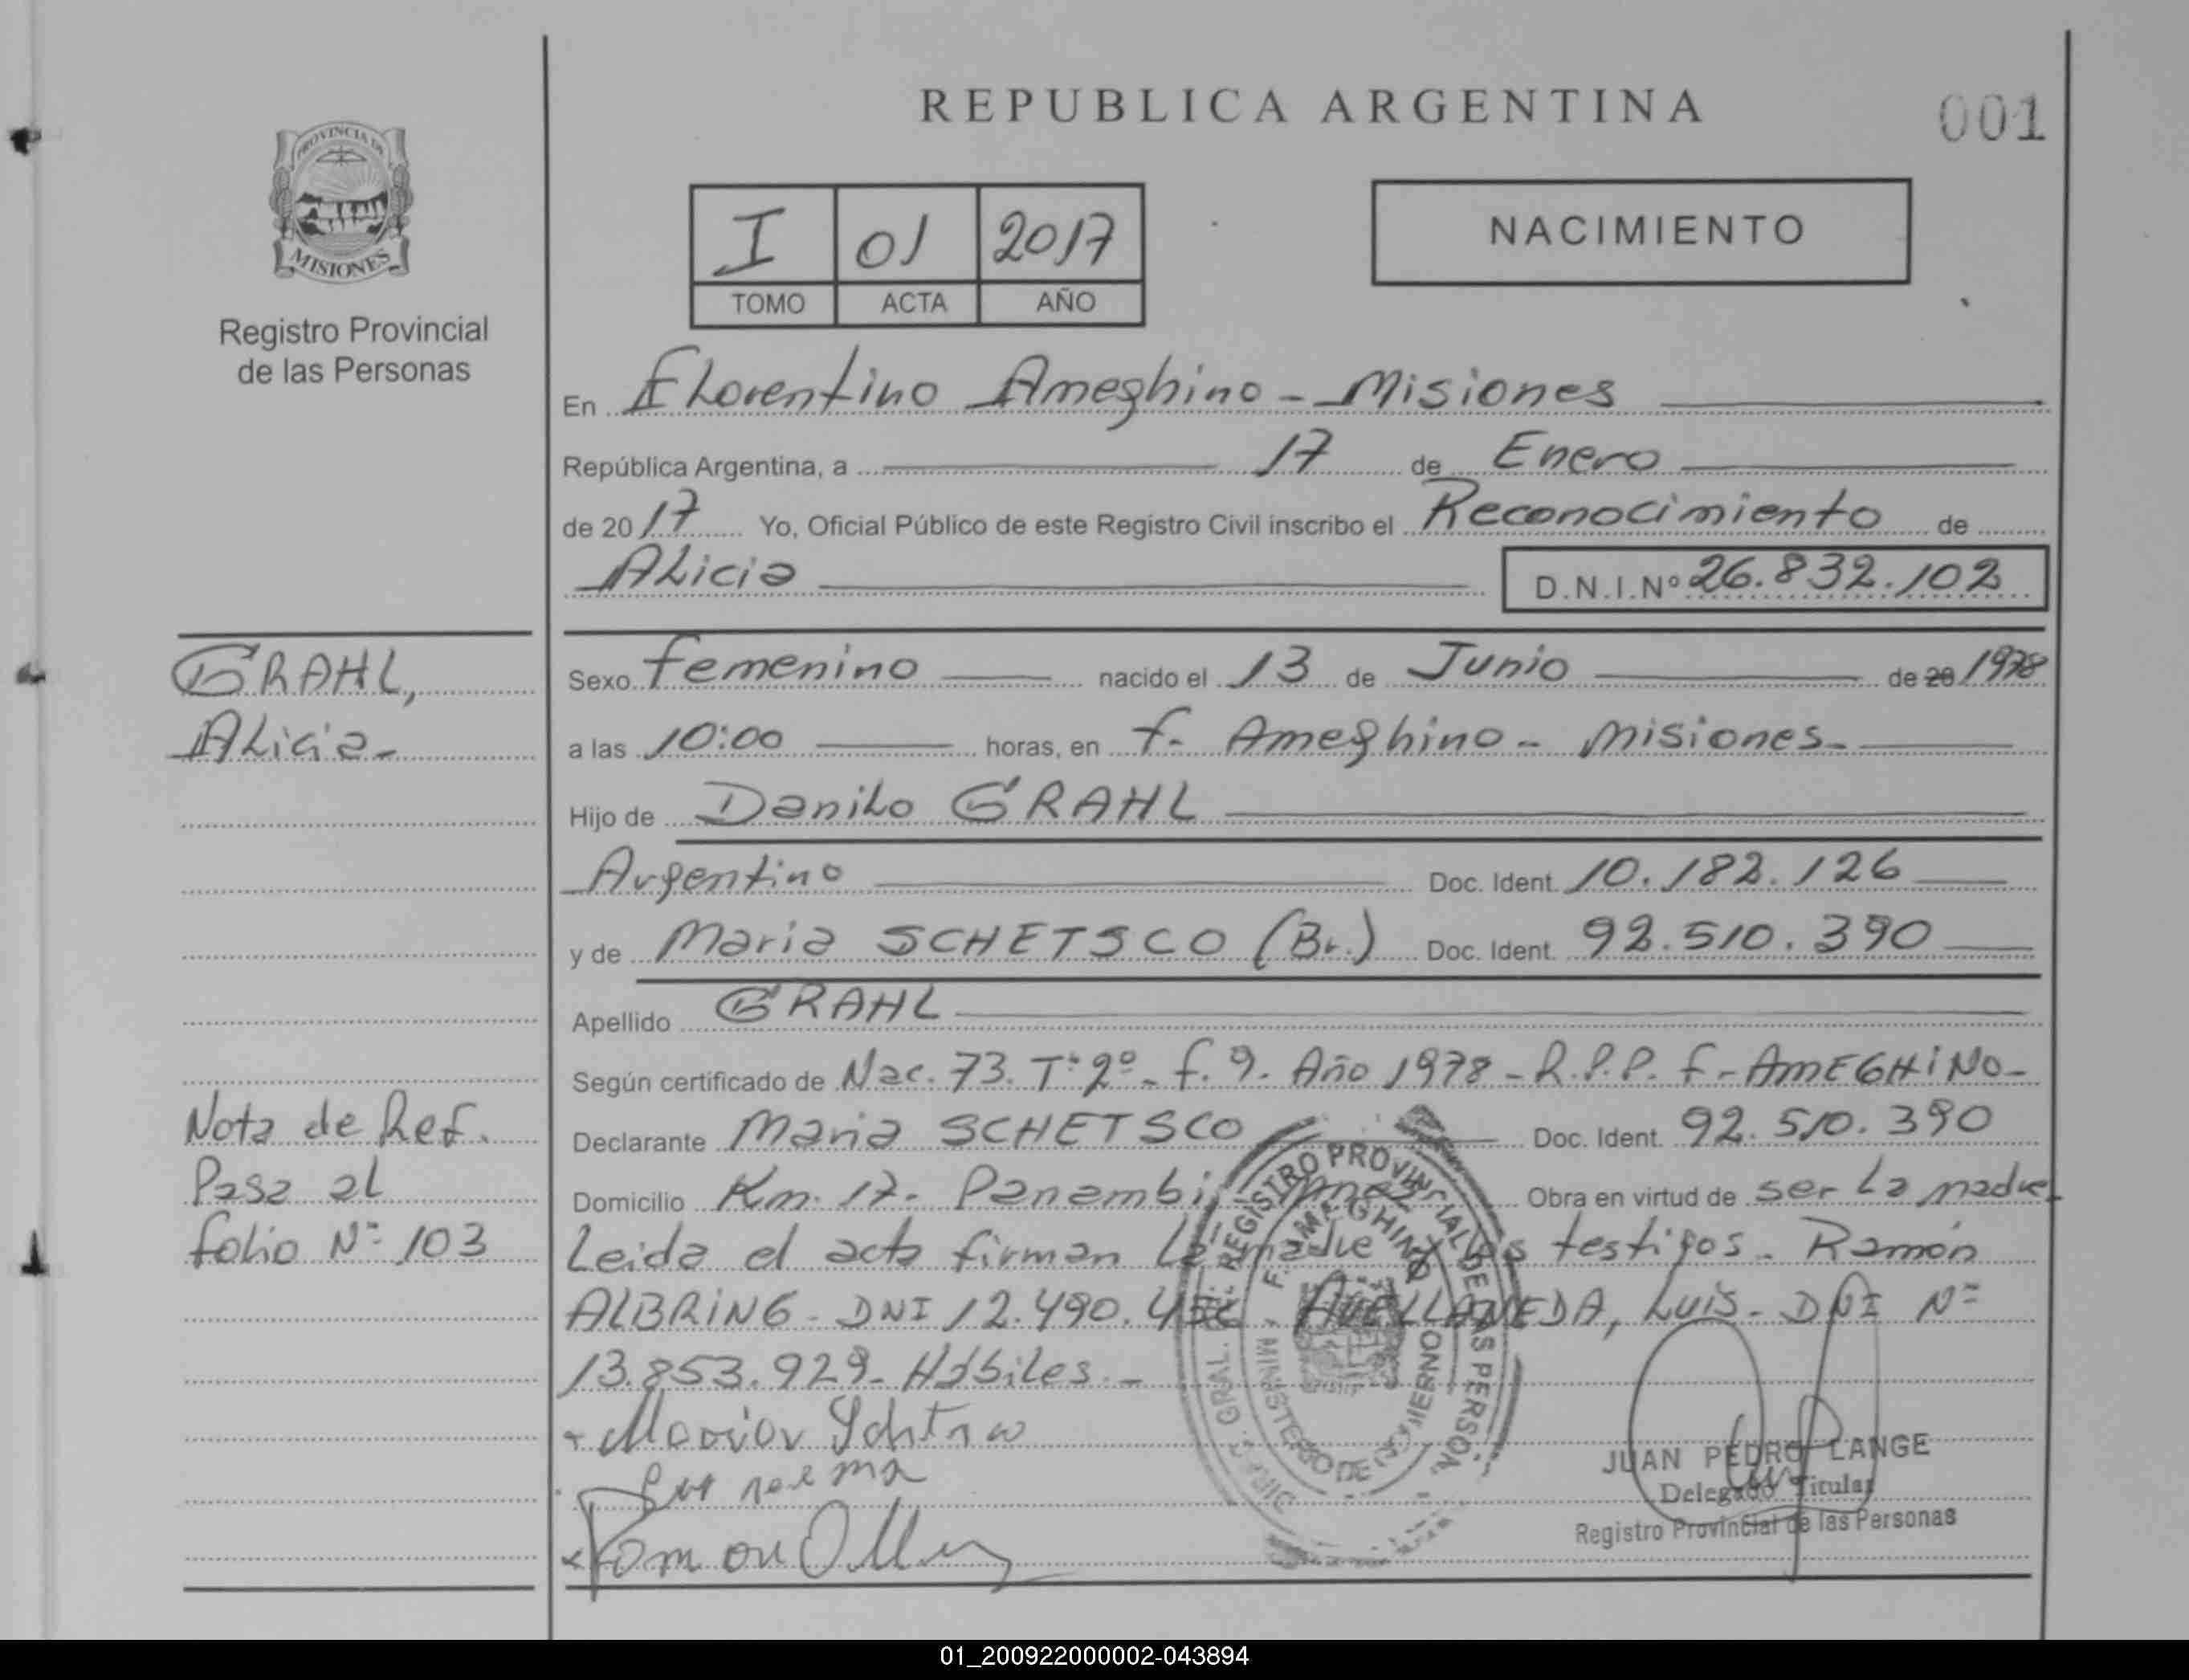 REPUBLICA ARGENTINA
001
PROVINCIA DE
MISIONES
Registro Provincial
de las Personas
I 01 2017
TOMO ACTA AÑO
NACIMIENTO
En Florentino Ameghino - Misiones
República Argentina, a 17 de Enero
de 2017 Yo, Oficial Público de este Registro Civil inscribo el Reconocimiento de
Alicia D.N.I.Nº 26.832.102
GRAHL,
Alicia-
Sexo femenino nacido el 13 de Junio de 20 1978
a las 10:00 horas, en f. Ameghino - Misiones-
Hijo de Danilo GRAHL
Argentino Doc. Ident. 10.182.126
y de Maria SCHETSCO (Br.) Doc. Ident. 92.510.390
Apellido GRAHL
Según certificado de Nac. 73. Tº 2º- f. 9- Año 1978 - R.P.P. f- AMEGHINO-
Nota de Ref.
Pasa al
folio Nº 103
Declarante Maria SCHETSCO Doc. Ident. 92.510.390
Domicilio Km. 17- Panambi Obra en virtud de ser la madre
Leida el acta firman la madre y los testigos- Ramón
ALBRING - DNI 12.490. AVELLANEDA, Luis- DNI Nº
13.853.929- Hábiles.-
REGISTRO PROVINCIAL DE LAS PERSON.
F. AMEGHINO
MINISTERIO DE GOBIERNO
JUAN PEDRO LANGE
Delegado Titular
Registro Provincial de las Personas
01_200922000002-043894